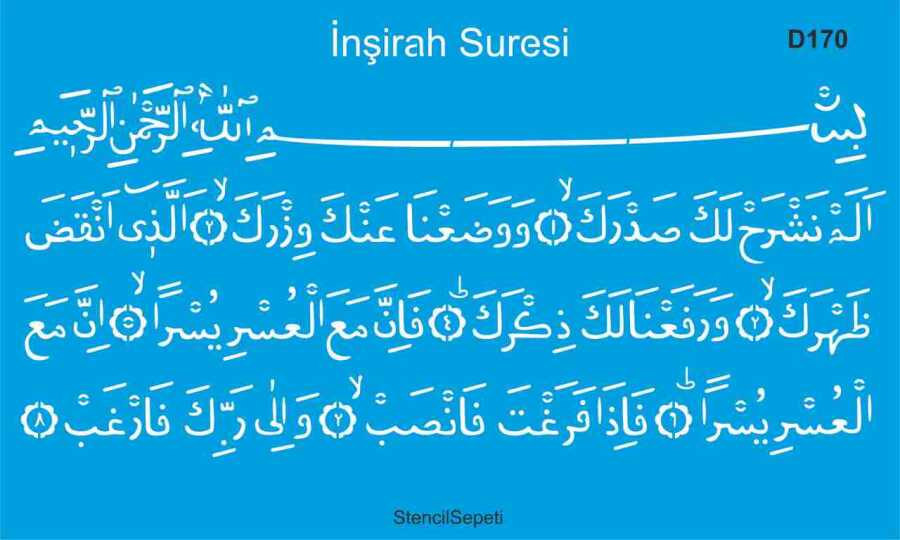 İnşirah Suresi
D170
بِسْمِ اللّٰهِ الرَّحْمٰنِ الرَّحِيمِ
اَلَمْ نَشْرَحْ لَكَ صَدْرَكَۙ ﴿١﴾ وَوَضَعْنَا عَنْكَ وِزْرَكَۙ ﴿٢﴾ اَلَّذ۪ٓى اَنْقَضَ
ظَهْرَكَۙ ﴿٢﴾ وَرَفَعْنَا لَكَ ذِكْرَكَۜ ﴿٤﴾ فَاِنَّ مَعَ الْعُسْرِ يُسْراًۙ ﴿٥﴾ اِنَّ مَعَ
الْعُسْرِ يُسْراًۜ ﴿٦﴾ فَاِذَا فَرَغْتَ فَانْصَبْۙ ﴿٧﴾ وَاِلٰى رَبِّكَ فَارْغَبْ ﴿٨﴾
StencilSepeti